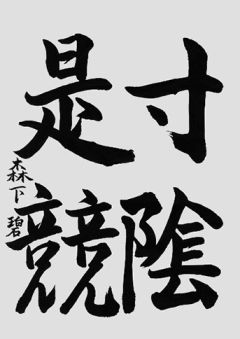 寸陰
是競
森下碧